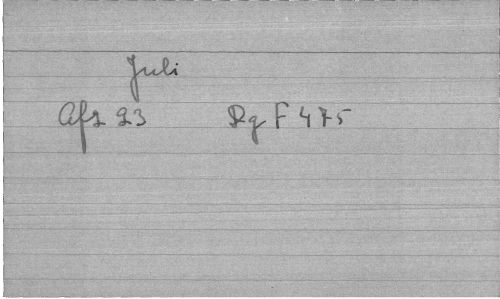 Juli
Afs 23 Rg F 475